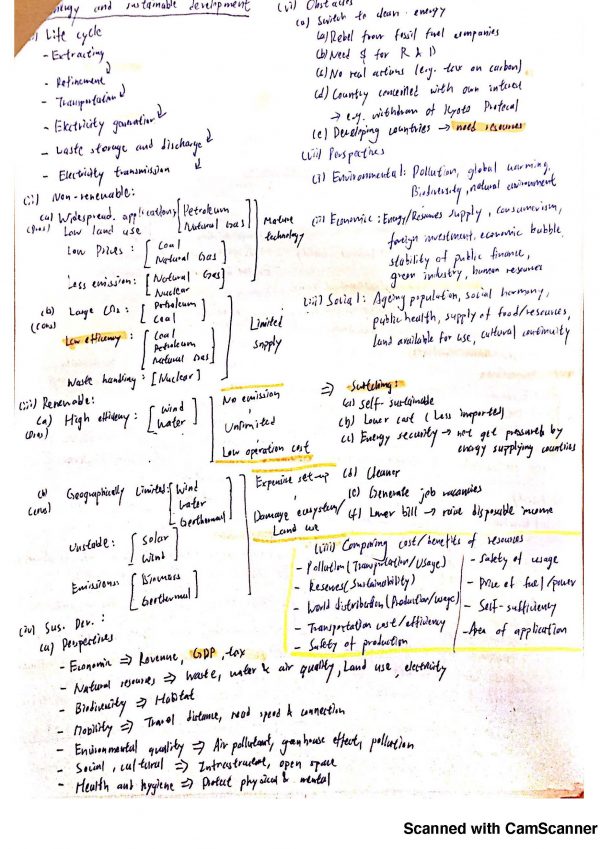 Energy and sustainable development
(i) Life cycle
- Extracting
- Refinement
- Transportation
- Electricity generation
- Waste storage and discharge
- Electricity transmission
(ii) Non-renewable:
(a) Widespread application: [Petroleum
(Pros) Low land use Natural Gas]
Low Prices: [Coal
Natural Gas]
Less emission: [Natural Gas
Nuclear]
Mature technology
(b) Large CO2: [Petroleum
(cons) Coal]
Low efficiency: [Coal
Petroleum
Natural Gas]
Waste handling: [Nuclear]
Limited supply
(iii) Renewable:
(a) High efficiency: [Wind
(Pros) Water]
No emission
Unlimited
Low operation cost
(b) Geographically Limited: [Wind
(cons) Water
Geothermal]
Unstable: [Solar
Wind]
Emissions: [Biomass
Geothermal]
Expensive set-up
Damage ecosystem/
Land use
(iv) Sus. Dev.:
(a) Perspectives
- Economic ⇒ Revenue, GDP, tax
- Natural resources ⇒ Waste, water & air quality, Land use, electricity
- Biodiversity ⇒ Habitat
- Mobility ⇒ Travel distance, road speed & connection
- Environmental quality ⇒ Air pollutant, greenhouse effect, pollution
- Social, cultural ⇒ Infrastruture, open space
- Health and hygiene ⇒ Protect physical & mental
(vi) Obstacles
(a) Switch to clean energy
(a) Rebel from fossil fuel companies
(b) Need $ for R & D
(c) No real actions (e.g. tax on carbon)
(d) Country concerned with own interest
→ e.g. withdraw of Kyoto Protocal
(e) Developing countries → need resources
(vii) Perspectives
(i) Environmental: Pollution, global warming,
Biodiversity, natural environment
(ii) Economic: Energy/Resources supply, consumerism,
foreign investment, economic bubble
stability of public finance,
green industry, human resources
(iii) Social: Ageing population, social harmony,
public health, supply of food/resources,
land available for use, cultural continuity
⇒ Switching:
(a) Self-sustainable
(b) Lower cost (Less imported)
(c) Energy security → not get pressured by
energy supplying countries
(d) Cleaner
(e) Generate job vacancies
(f) Lower bill → raise disposable income
(viii) Comparing cost/benefits of resources
- Pollution (Transportation/Usage)
- Reserves (Sustainability)
- World distribution (Production/usage)
- Transportation cost/efficiency
- Safety of production
- Safety of usage
- Price of fuel/power
- Self-sufficiency
- Area of application
Scanned with CamScanner